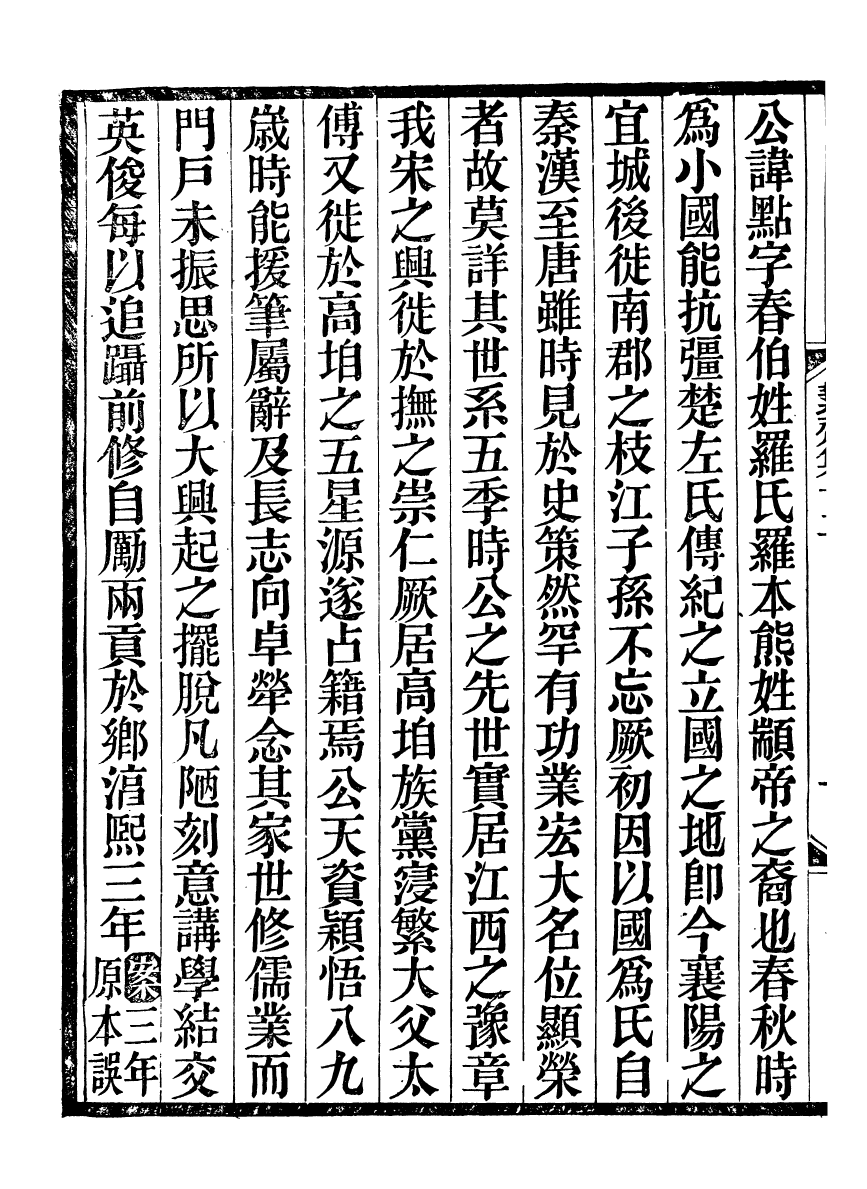 公諱點字春伯姓羅氏羅本熊姓顓帝之裔也春秋時
爲小國能抗彊楚左氏傳紀之立國之地卽今襄陽之
宜城後徙南郡之枝江子孫不忘厥初因以國爲氏自
秦漢至唐雖時見於史策然罕有功業宏大名位顯榮
者故莫詳其世系五季時公之先世實居江西之豫章
我宋之興徙於撫之崇仁厥居高㘰族黨寖繁大父太
傅又徙於高㘰之五星源遂占籍焉公天資穎悟八九
歲時能援筆屬辭及長志向卓犖念其家世修儒業而
門戶未振思所以大興起之擺脫凡陋刻意講學結交
英俊每以追躡前修自勵兩貢於鄉淳熙三年案三年
原本誤